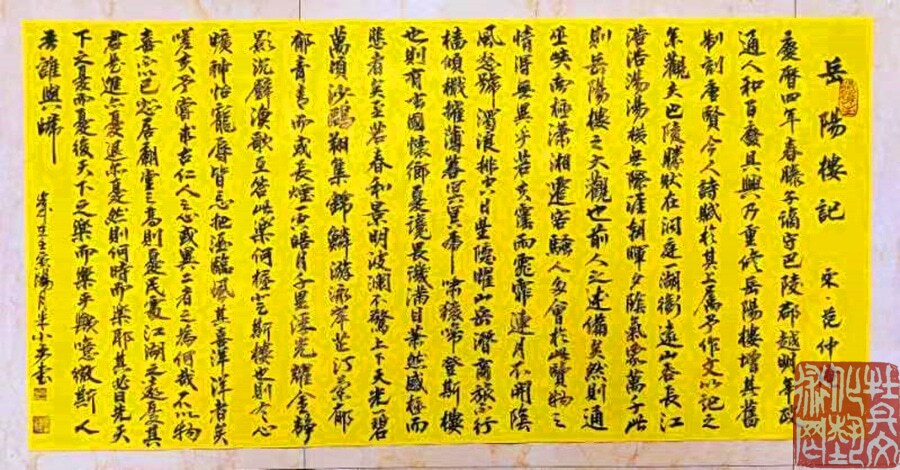 岳陽樓記 宋·范仲
慶曆四年春滕子謫守巴陵郡越明年政
通人和百廢具興乃重修岳陽樓增其舊
制刻唐賢今人詩賦於其上屬予作文以記之
予觀夫巴陵勝狀在洞庭一湖銜遠山吞長江
浩浩湯湯橫無際涯朝暉夕陰氣象萬千此
則岳陽樓之大觀也前人之述備矣然則通
巫峽南極瀟湘遷客騷人多會於此覽物之
情得無異乎若夫霪雨霏霏連月不開陰
風怒號濁浪排空日星隱曜山岳潛商旅不行
檣傾楫摧薄暮冥冥虎嘯猿啼登斯樓
也則有去國懷鄉憂讒畏譏滿目蕭然感極而
悲者矣至若春和景明波瀾不驚上下天光一碧
萬頃沙鷗翔集錦鱗游泳岸芷汀蘭郁
郁青青而或長煙一空皓月千里浮光耀金靜
影沉璧漁歌互答此樂何極登斯樓也則有心
曠神怡寵辱皆忘把酒臨風其喜洋洋者矣
嗟夫予嘗求古仁人之心或異二者之為何哉不以物
喜不以己悲居廟堂之高則憂民處江湖之遠憂其
君是進亦憂退亦憂然則何時而樂耶其曰先天
下之憂而憂後天下之樂而樂乎噫微斯人
吾誰與歸